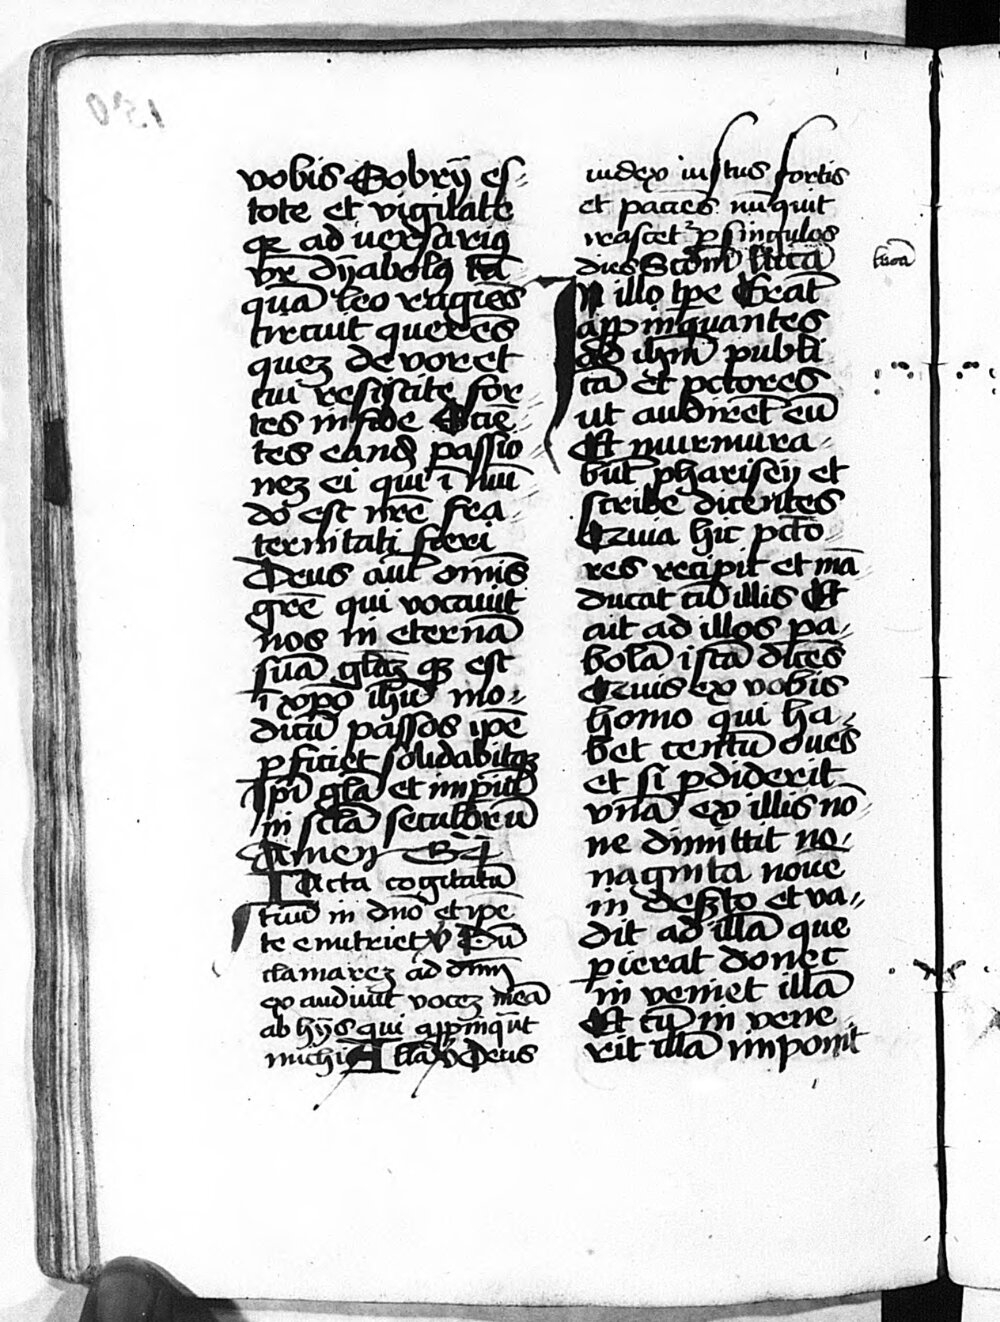 vobis Sobrij es⸗
tote et vigilate
qꝛ ad uersariꝯ
vr̄ dyabolꝯ tā
quā leo rugiēs
circuit querēs
quez devoret
cui resistite for
tes in fide Scie̅
tes eandē passio
nez ei qui ī mū
do est vrē fra⸗
ternitati fieri
Deus aut̄ omīs
grē qui vocavit
nos in eternā
suā glāz qz est
ī xp̄o ih̄u mo⸗
dicū passos ipē
ꝑficiet solidabitqz
Ipī glā et impiū
in sclā seculorū
Amen Gͣ
Iacta cogitatū
tuū in dn̄o et ipē
te enutriet v̄ Dū
clamarez ad dnm̄
exaudiuit vocez meā
ab hijs qui apꝓinq̄nt
michi Alla v̄ Deus
iudex iustus fortis
et paciēs nūquit
irascet̄ ꝑ singulos
dies Scdm̄ lucā
lucā
In illo tp̄e Erāt
apꝓinquantes
ad ihm̄ publi
cā et pctores
ut audirēt eū
Et murmura⸗
bāt pharisey et
scribe dicentes
Quia hic pctō
res recipit et mā
ducat cū illis Et
ait ad illos pa⸗
bolā istā dicēs
Quis ex vobis
homo qui ha⸗
bet centū oues
et si ꝑdiderit
vnā ex illis nō
ne dimittit no⸗
naginta nove
in desꝛto et va⸗
dit ad illā que
ꝑierat donec
in veniet illā
Et cū in vene
rit illā imponit